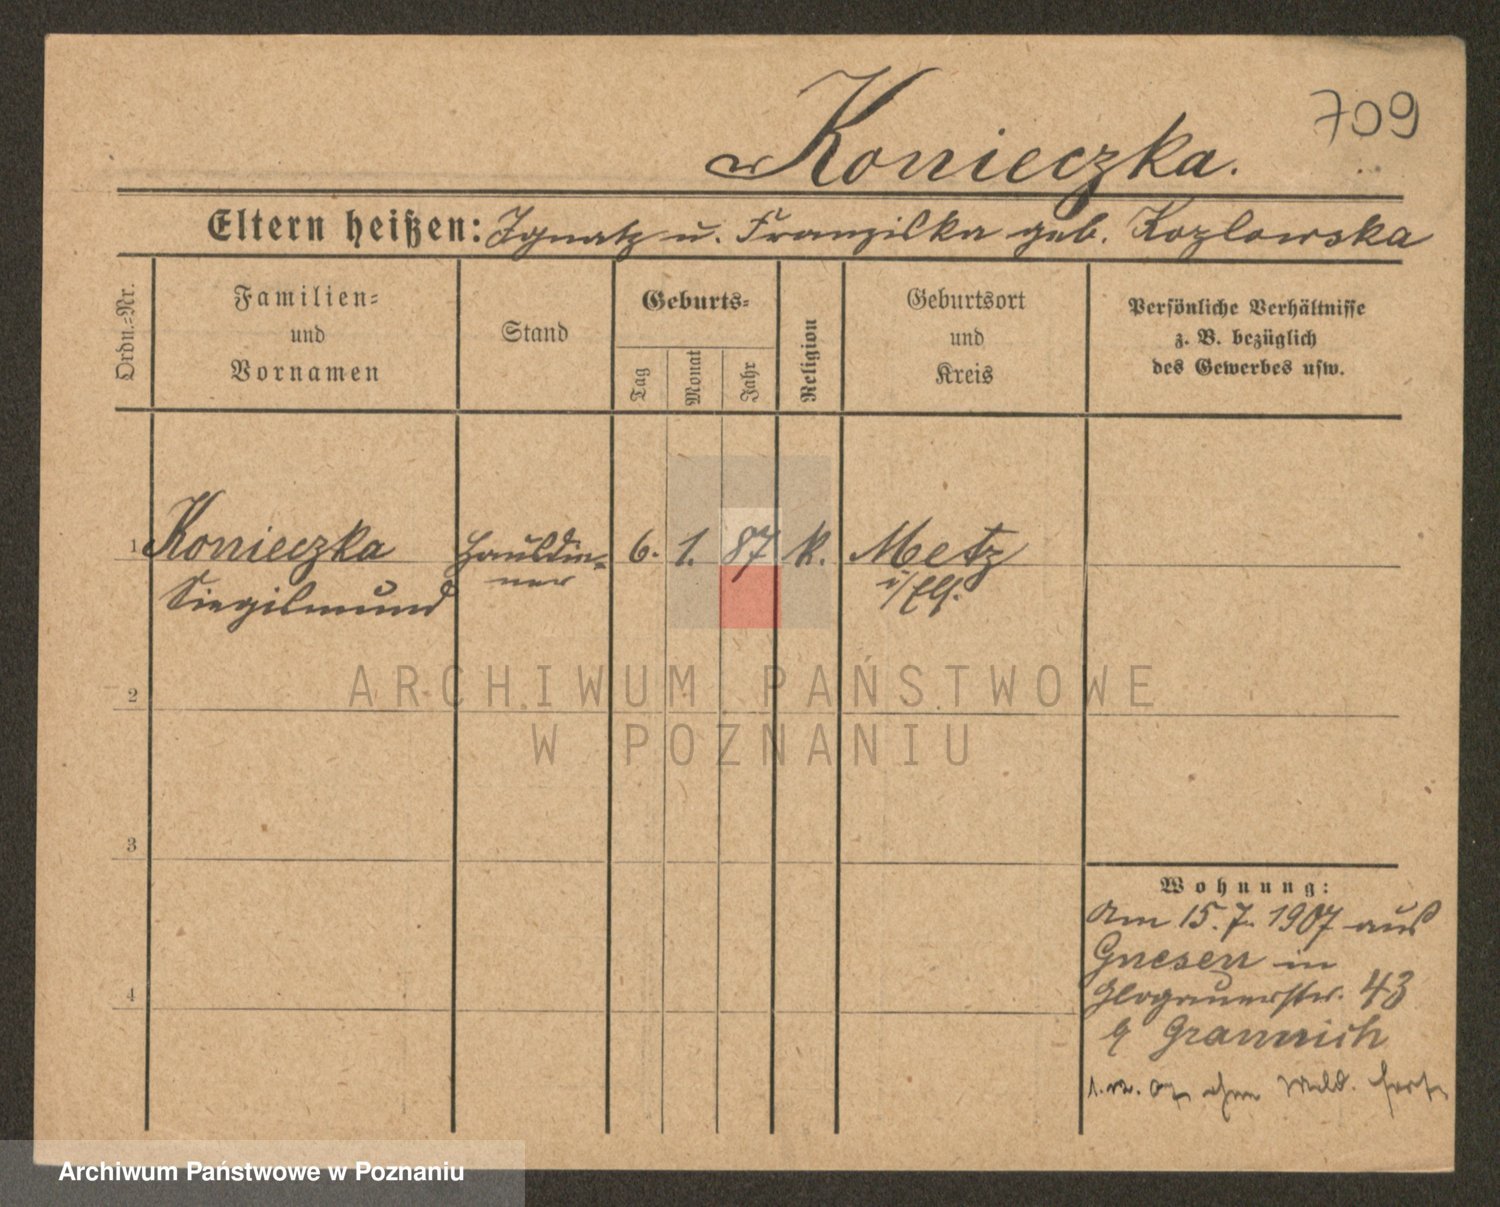 709
Konieczka.
Eltern heißen: Ignatz u. Franziska geb. Kozlowska
Ordn.=Nr.
Familien=
und
Vornamen
Stand
Geburts=
Tag
Monat
Jahr
Religion
Geburtsort
und
Kreis
Persönliche Verhältnisse
z. B. bezüglich
des Gewerbes usw.
1 Konieczka Hausdie= 6. 1. 87 k. Metz
Siegismund ner
2
ARCHIWUM PAŃSTWOWE
W POZNANIU
3
4
Wohnung:
Am 15.7.1907 aus
Gnesen in
Glogauerstr. 43
b Grannich
1.12.07 ohne Meld. fort
Archiwum Państwowe w Poznaniu